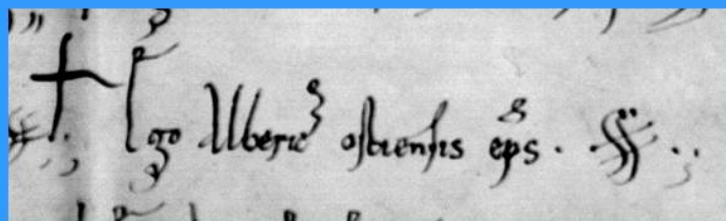 † Ego Alberic᾽ ostiensis ep̄s. SS.